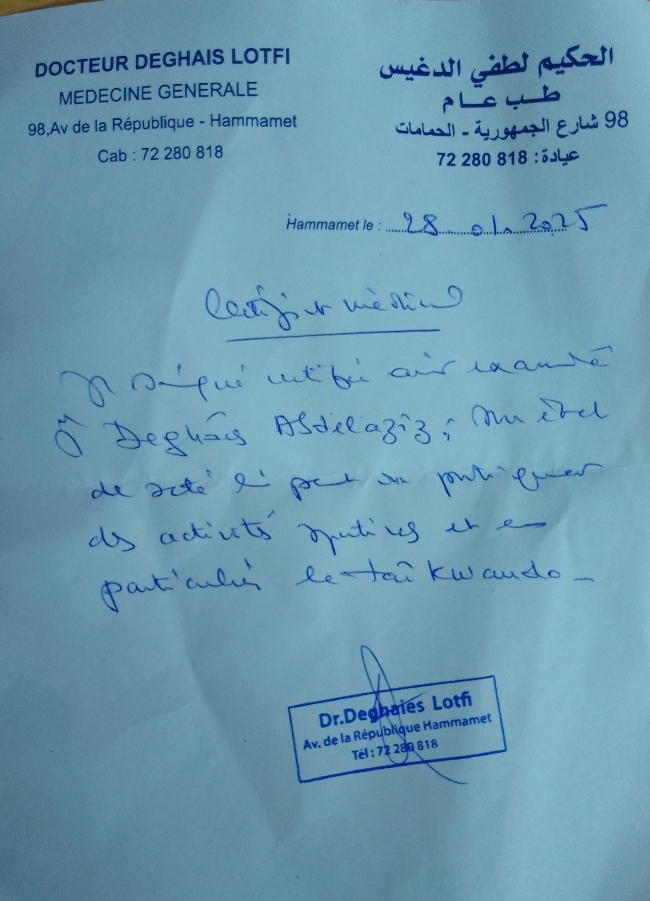 DOCTEUR DEGHAIS LOTFI
MEDECINE GENERALE
98,Av de la République - Hammamet
Cab : 72 280 818
الحكيم لطفي الدغيس
طب عام
98 شارع الجمهورية - الحمامات
عيادة : 818 280 72
Hammamet le : 28 01 2025
Certificat médical
Je soigné certifie avoir examiné
Deghais Abdelaziz ; son état
de santé lui permet de pratiquer
des activités sportives et en
particulier le taîkwando -
Dr.Deghaies Lotfi
Av. de la République Hammamet
Tél : 72 280 818